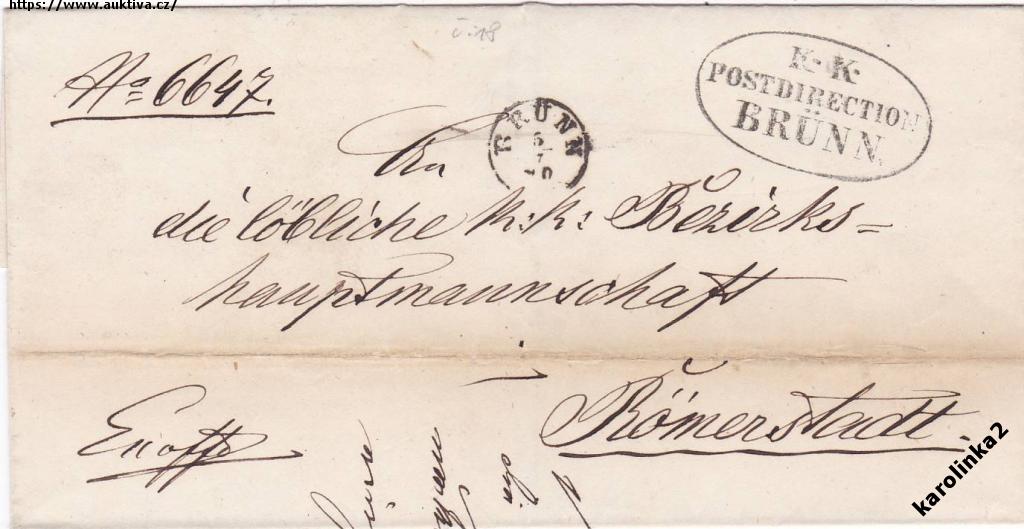 https://www.auktiva.cz/
v. 18
No 6647.
K. K.
POSTDIRECTION
BRÜNN.
BRÜNN
5
7
An
die löbliche k: k: Bezirks=
hauptmannschaft
Römerstadt.
Exoffo
karolinka2